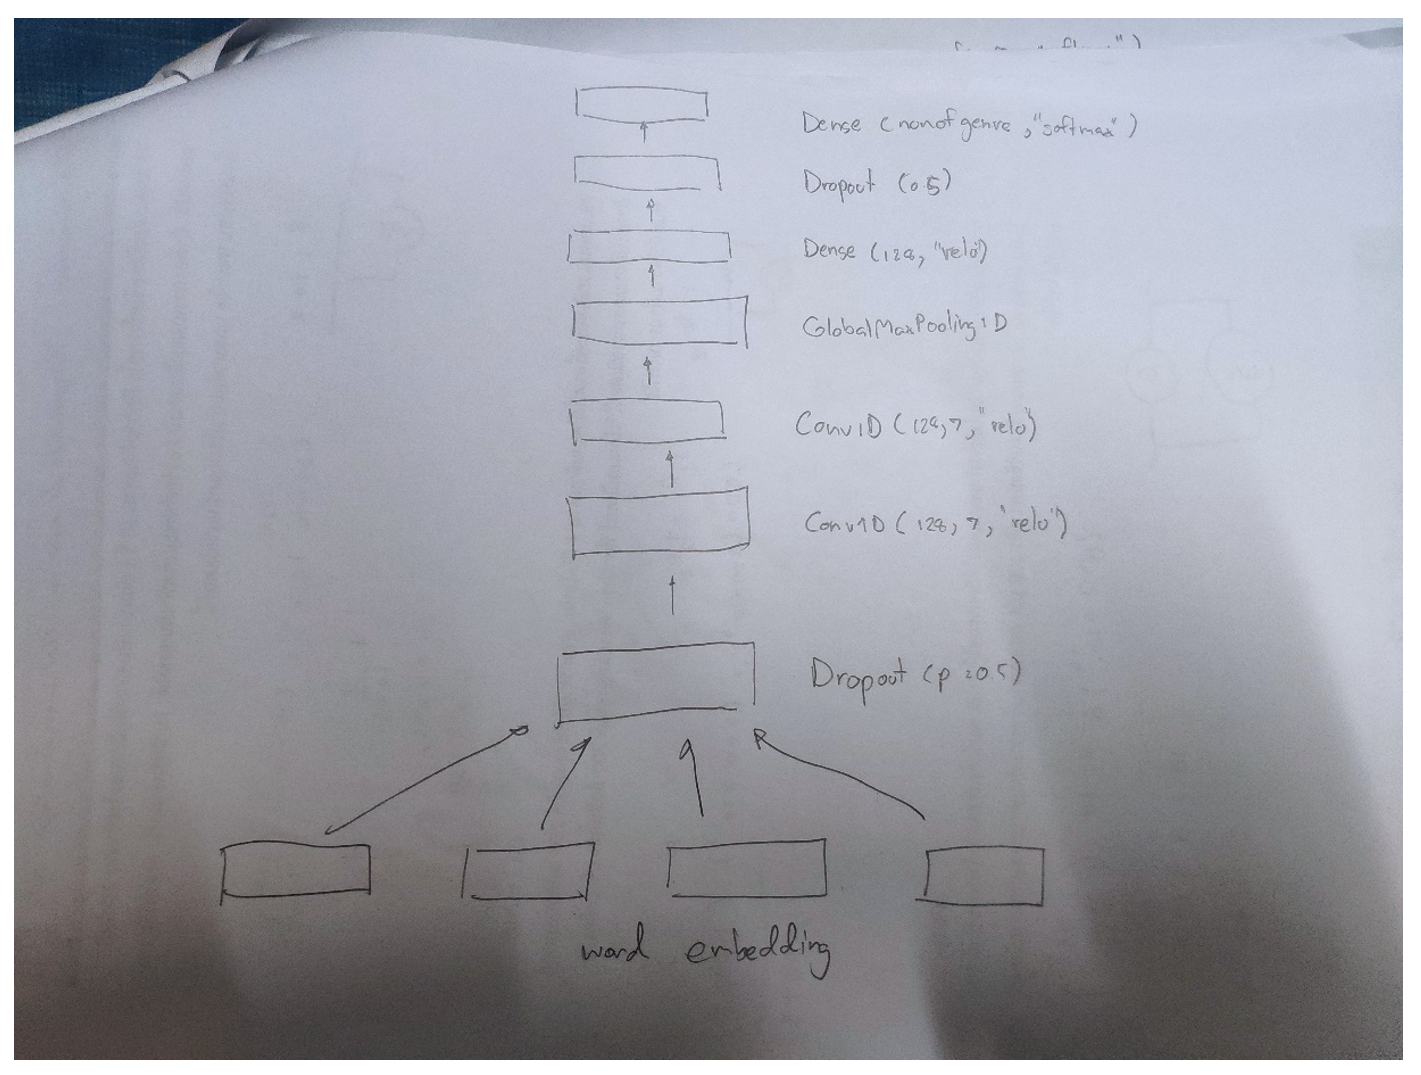 Dense (nonofgenre, "softmax")
Dropout (0.5)
Dense (128, "relu")
GlobalMaxPooling1D
Conv1D (128, 7, "relu")
Conv1D (128, 7, "relu")
Dropout (p=0.5)
word embedding